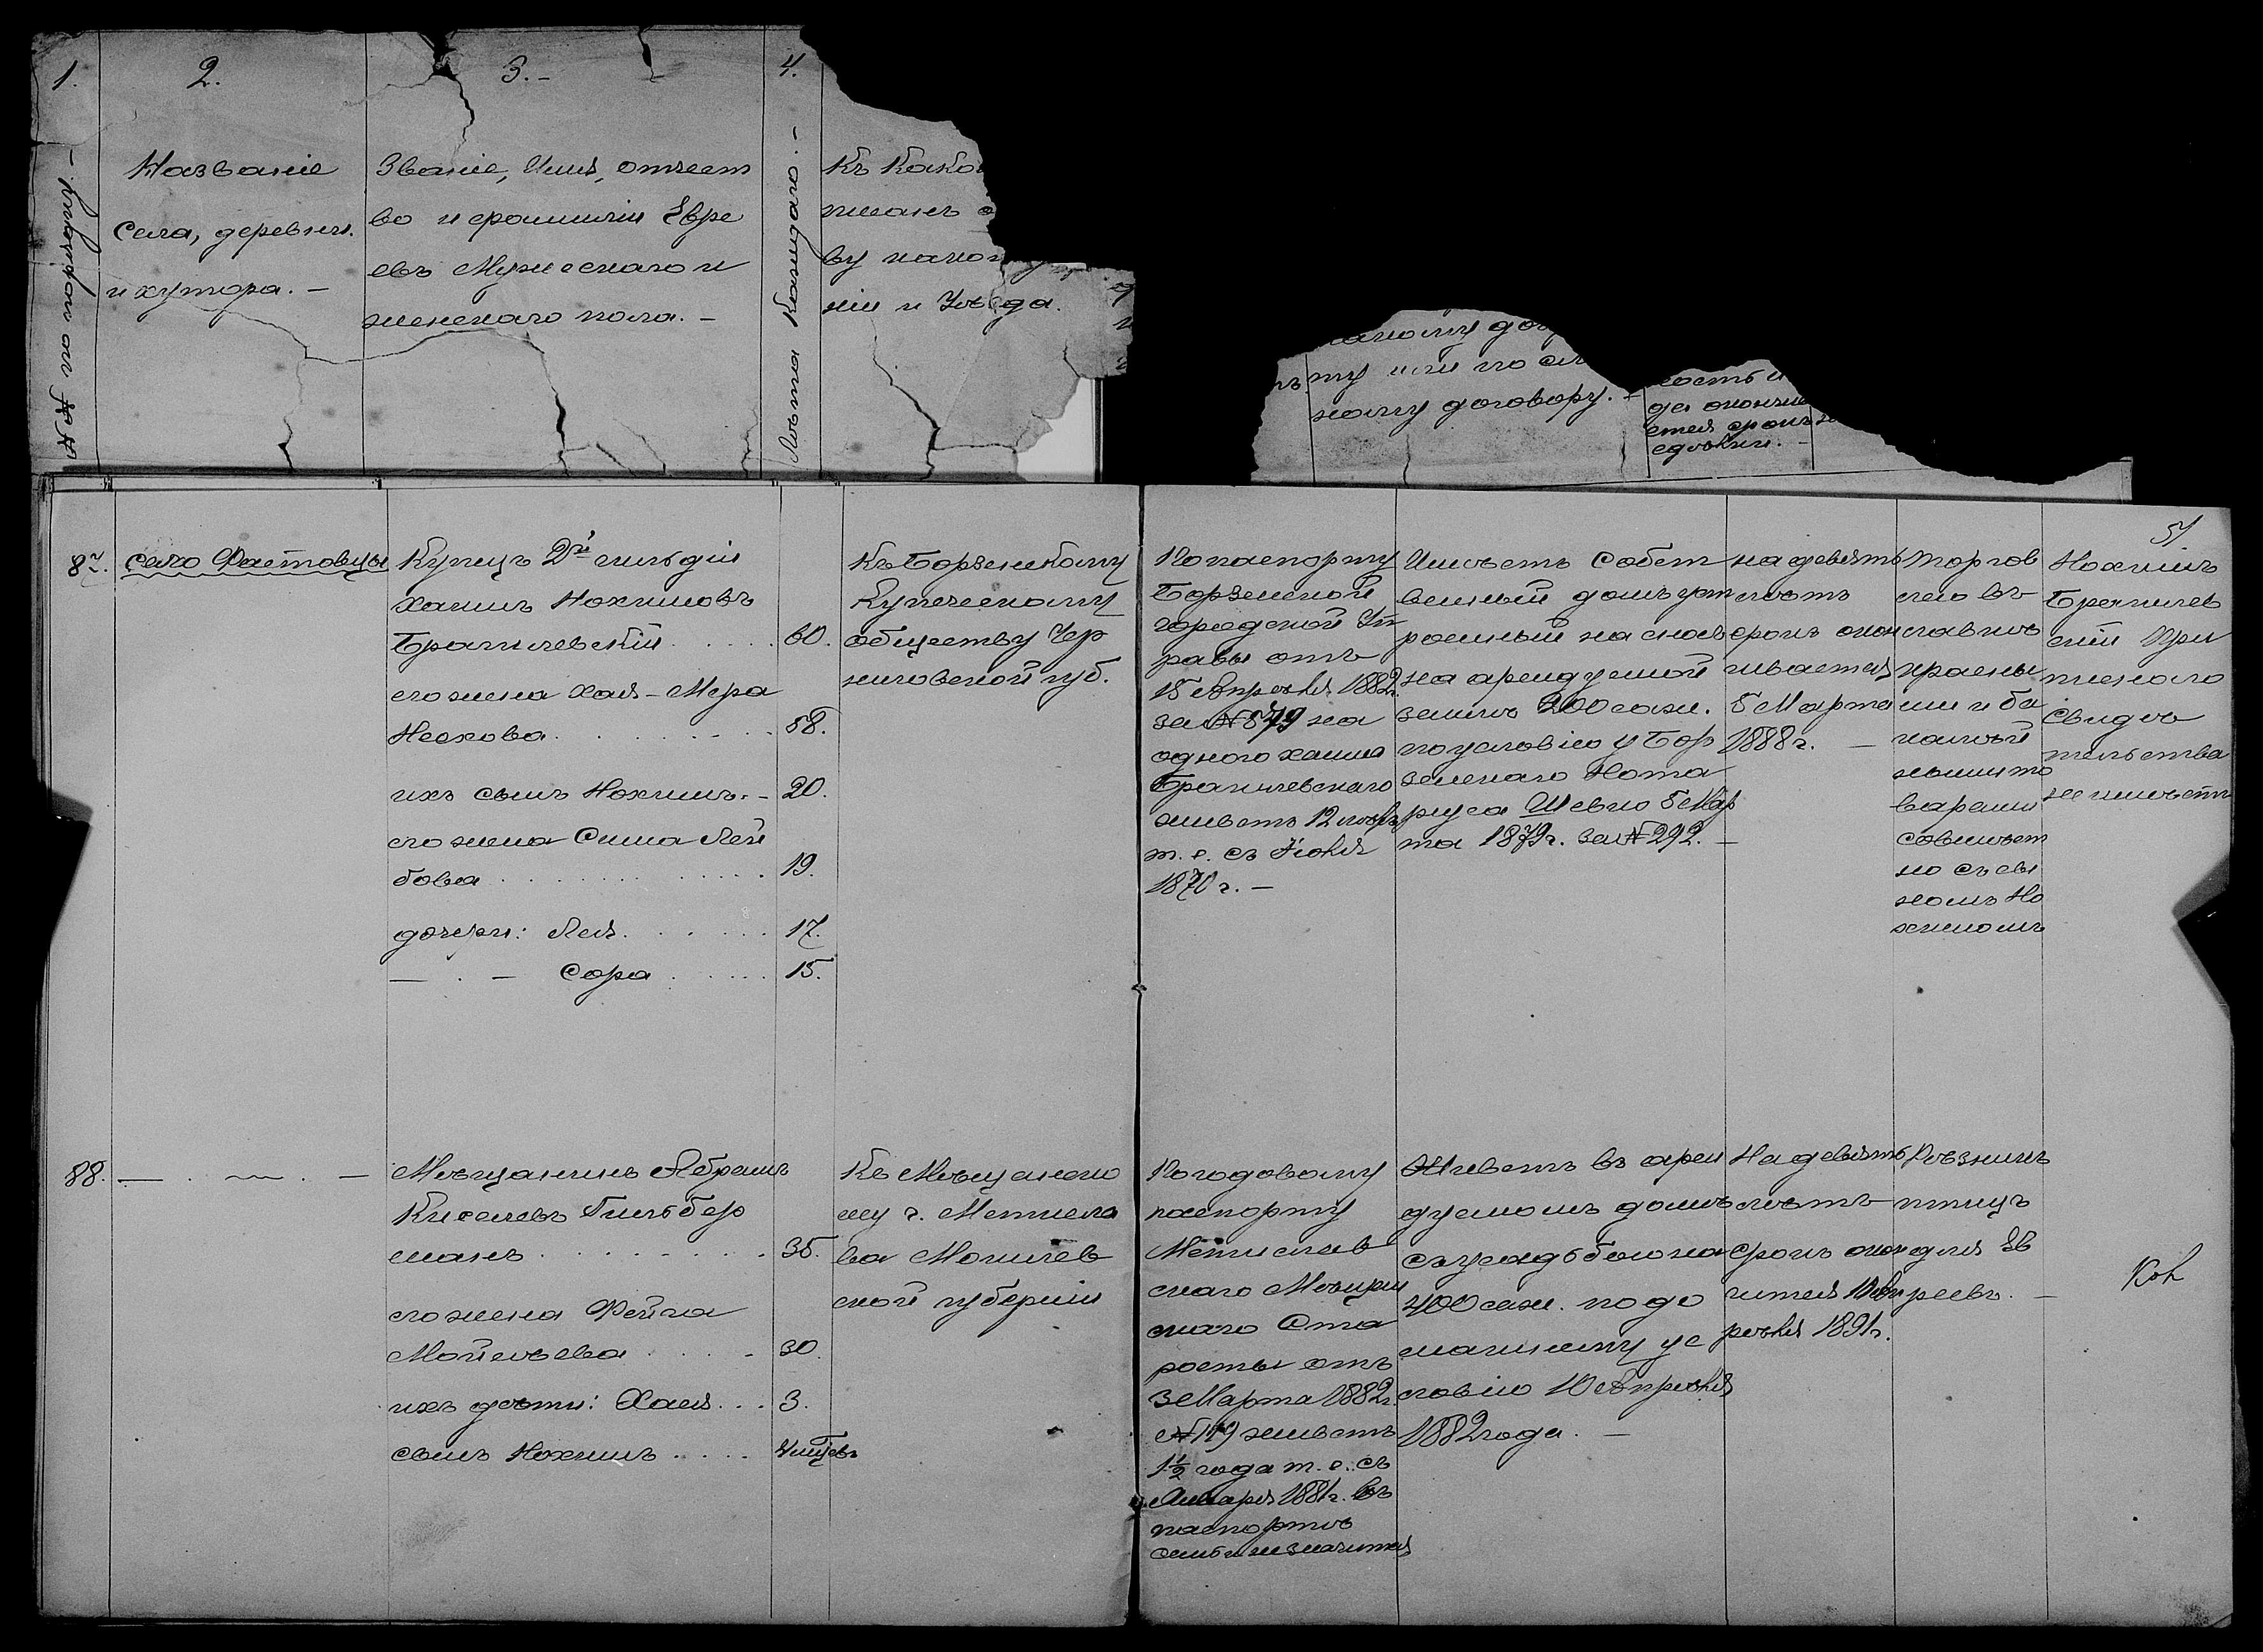 1.
2.
3.-
4.
№№ по порядку.-
Названіе
села, деревни.
и хутора.-
Званіе, Имя, отчест
во и фамиліи Евре
евъ Мужескаго и
женскаго пола.-
Лѣта Каждаго.-
Къ како
ву
ніи и Уѣзда.
ту или по
ному договору.-
ность и
да окончи
51
87.
село Фастовцы
Купецъ 2й гильдіи
Хаимъ Нохимовъ
Брагилевскій . . . . . 60.
его жена Хая-Мера
Несхова. . . . . . . . 58.
ихъ сынъ Нохимъ.- 20.
его жена Сима Лей
бова . . . . . . . . . . 19.
дочери: Лея. . . . . . 17.
— . — Сора . . . . . 15.
Къ Борзенскому
Купеческому
обществу Чер
ниговской губ.
По паспорту
Борзенской
городской Уп
равы отъ
15 Апрѣля 1882г.
за № 579 на
одного Хаима
Брагилевскаго
живетъ 12 лѣтъ
т. е. съ Іюля
1870 г.—
Имѣетъ собст
венный домъ уст
роенный на
на арендуемой
землѣ 200 саж.
по условію у Бор
зенскаго Нота
ріуса Шевно 5 Мар
та 1879г. за № 292.—
на девять
лѣтъ
срокъ окон
чивается
5 Марта
1888 г. —
Торгов
лею въ
лавкѣ
красны
ми и ба
калѣй
ными то
варами
совмѣст
но съ сы
номъ Но
химомъ
Нохимъ
Брагилев
скій При
писного
свидѣ
тельства
не имѣетъ
88.
— . — . —
Мѣщанинъ Абрамъ
Киселевъ Гильбер
манъ . . . . . . . . . 35.
его жена Фейга
Мойсеева . . . . - 30.
ихъ дѣти: Хая. . . 3.
сынъ Нохимъ . . . .
Къ Мѣщанско
му г. Мстисла
ва Могилев
ской губерніи
По годовому
паспорту
Мстислав
скаго Мѣщан
скаго Ста
росты отъ
3 Марта 1882г.
№ 119 живетъ
1½ года т. е. съ
Января 1881г. въ
паспортѣ
семья не значится
Живетъ въ арен
дуемомъ домѣ
съ усадьбою на
400 саж. по до
машнему ус
ловію 10 Апрѣля
1882 года. —
На девять
лѣтъ
срокъ окон
чится 10 Ап
рѣля 1891г.
Рѣзникъ
птицъ
для Ев
реевъ. —